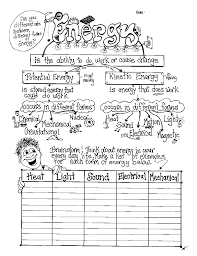 Name:
Can you differentiate between different types of Energy?
Energy
is the ability to do work or cause change
Potential Energy
Kinetic Energy
is stored energy that can do work
is energy that does work
occurs in different forms
occurs in different forms
Chemical
Mechanical
Gravitational
Nuclear
Heat
Motion
Light
Sound
Electrical
Magnetic
Brainstorm! Think about energy in your
every day life. Make a list of examples
for each form of energy below.
Heat Light Sound Electrical Mechanical